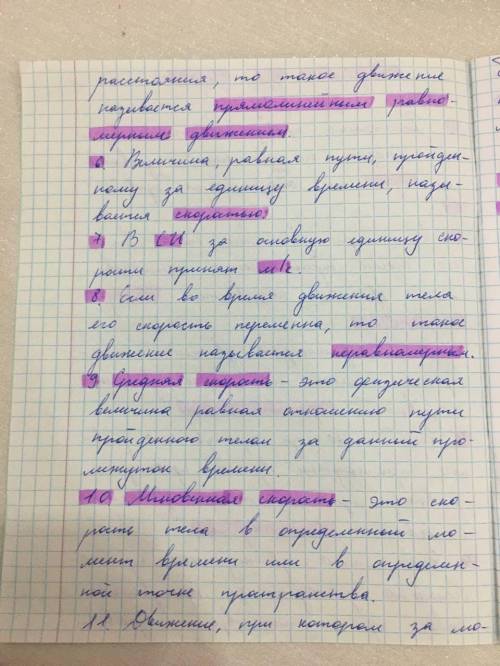 расстояния, то такое движение
называется прямолинейным равно-
мерным движением.
6. Величина, равная пути, пройден-
ному за единицу времени, назы-
вается скоростью.
7. В СИ за основную единицу ско-
рости принят м/с.
8. Если во время движения тела
его скорость переменна, то такое
движение называется неравномерным.
9 Средная скорость - это физическая
величина равная отношению пути
пройденного телом за данный про-
межуток времени.
10. Мгновенная скорость - это ско-
рость тела в определенный мо-
мент времени или в определен-
ной точке пространства.
11. Движение, при котором за мо-